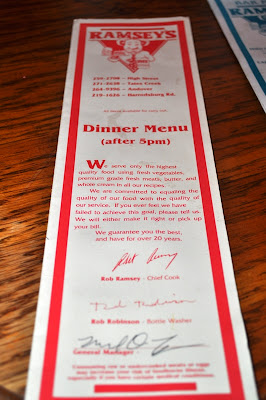 RAMSEY'S
259-2708 - High Street
271-2638 - Tates Creek
264-9396 - Andover
219-1626 - Harrodsburg Rd.
All items available for carry out.
Dinner Menu
(after 5pm)
We serve only the highest
quality food using fresh vegetables,
premium grade fresh meats, butter, and
whole cream in all our recipes.
We are committed to equaling the
quality of our food with the quality of
our service. If you ever feel we have
failed to achieve this goal, please tell us.
We will either make it right or pick up
your bill.
We guarantee you the best,
and have for over 20 years.
Rob Ramsey - Chief Cook
Rob Robinson - Bottle Washer
General Manager -
Consuming raw or undercooked meats or eggs
may increase your risk of foodborne illness,
especially if you have certain medical conditions.